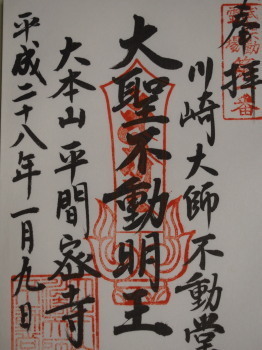 奉拝
川崎大師不動堂
大聖不動明王
大本山平間寺
平成二十八年一月九日